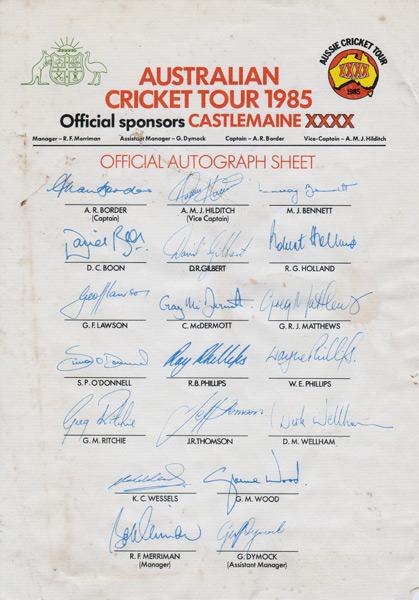 AUSSIE CRICKET TOUR
XXXX
1985
AUSTRALIAN
CRICKET TOUR 1985
Official sponsors CASTLEMAINE XXXX
Manager – R. F. Merriman Assistant Manager – G. Dymock Captain – A. R. Border Vice-Captain – A. M. J. Hilditch
OFFICIAL AUTOGRAPH SHEET
Murray Bennett
A. R. BORDER A. M. J. HILDITCH M. J. BENNETT
(Captain) (Vice Captain)
David Boon David Gilbert Robert Holland
D. C. BOON D.R.GILBERT R. G. HOLLAND
Geoff Lawson Craig McDermott Greg Matthews
G. F. LAWSON C. McDERMOTT G. R. J. MATTHEWS
Simon O'Donnell Ray Phillips Wayne Phillips
S. P. O'DONNELL R.B. PHILLIPS W. E. PHILLIPS
Greg Ritchie Jeff Thomson Dirk Wellham
G. M. RITCHIE J.R. THOMSON D. M. WELLHAM
Graeme Wood
K. C. WESSELS G. M. WOOD
Bob Merriman Geoff Dymock
R. F. MERRIMAN G. DYMOCK
(Manager) (Assistant Manager)